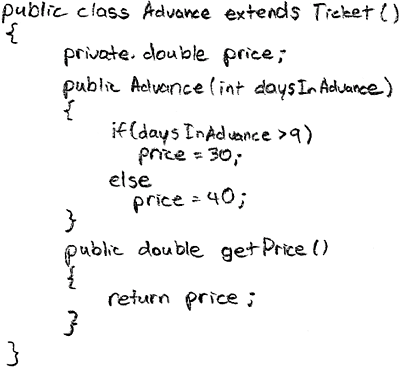 public class Advance extends Ticket()
{
private double price;
public Advance(int daysInAdvance)
{
if(daysInAdvance >9)
price = 30;
else
price = 40;
}
public double getPrice()
{
return price;
}
}